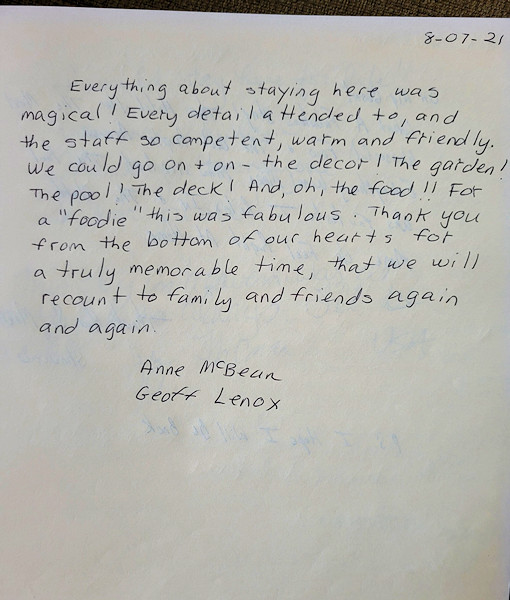 8-07-21
Everything about staying here was
magical! Every detail attended to, and
the staff so competent, warm and friendly.
We could go on + on - the decor! The garden!
The pool! The deck! And, oh, the food!! For
a "foodie" this was fabulous. Thank you
from the bottom of our hearts for
a truly memorable time, that we will
recount to family and friends again
and again.
Anne McBean
Geoff Lenox